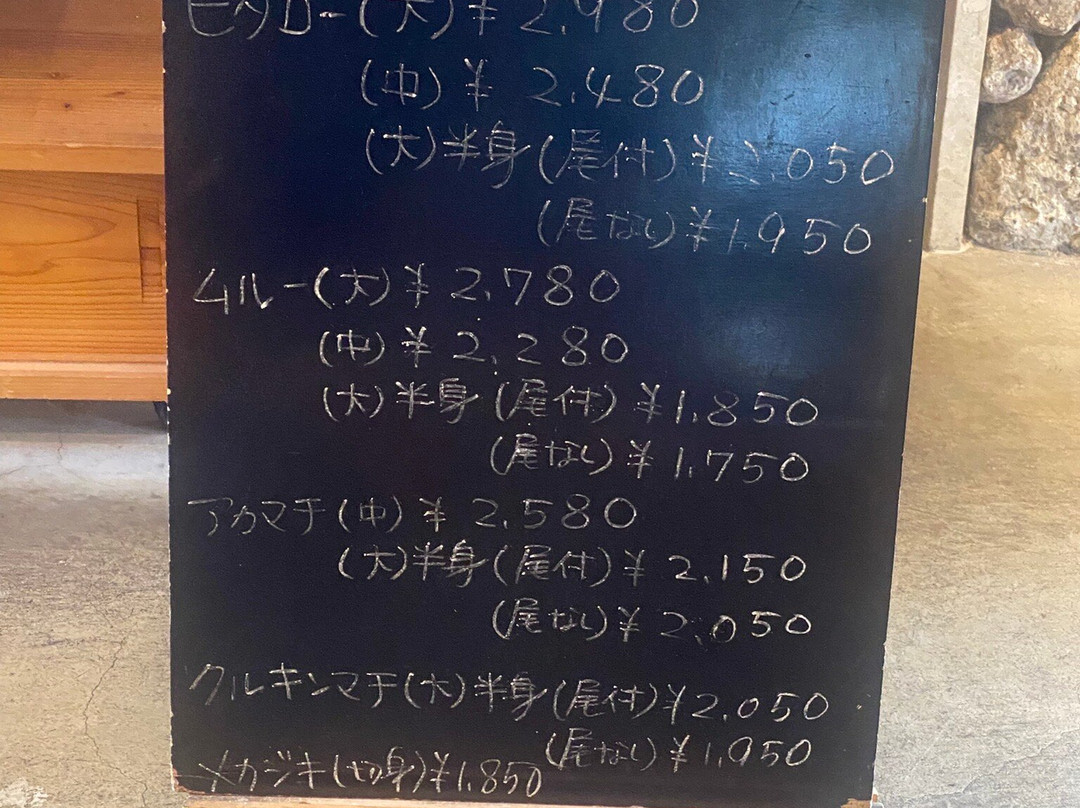 ビタロー(大)¥2.980
(中)¥2.480
(大)半身(尾付)¥2.050
(尾なし)¥1.950
ムルー(大)¥2.780
(中)¥2.280
(大)半身(尾付)¥1.850
(尾なし)¥1.750
アカマチ(中)¥2.580
(大)半身(尾付)¥2.150
(尾なし)¥2.050
クルキンマチ(大)半身(尾付)¥2.050
(尾なし)¥1.950
メカジキ(切身)¥1.850